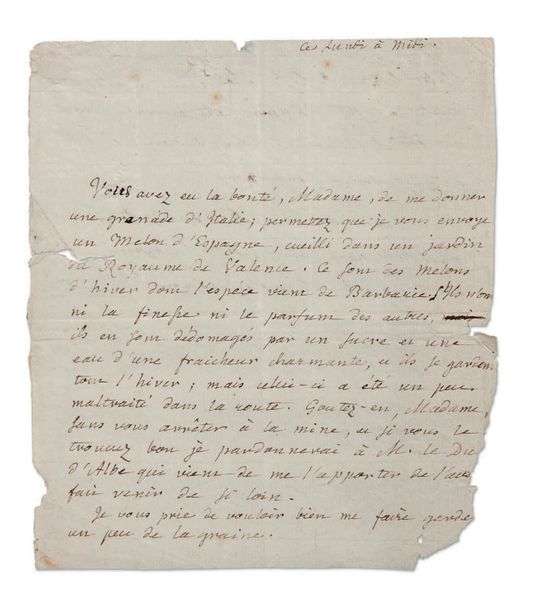 Ces Lundi à Midi.
Vous avez eu la bonté, Madame, de me donner
une granade d'Italie; permettez que je vous envoye
un Melon d'Espagne, cueilli dans un jardin
du Royaume de Valence. Ce sont des Melons
d'hiver dont l'espece vient de Barbarie. S'Ils n'ont
ni la finesse ni le parfum des autres,
ils en sont dédomagés par un sucre et une
eau d'une fraicheur charmante, et ils se gardent
tout l'hiver; mais celui-ci a eté un peu
maltraité dans la route. Goutez-en, Madame,
sans vous arrêter à la mine, et si vous le
trouvez bon je pardonnerai à M. le Duc
d'Albe qui vient de me l'apporter de l'avoir
fait venir de si loin.
Je vous prie de vouloir bien me faire garder
un peu de la graine.